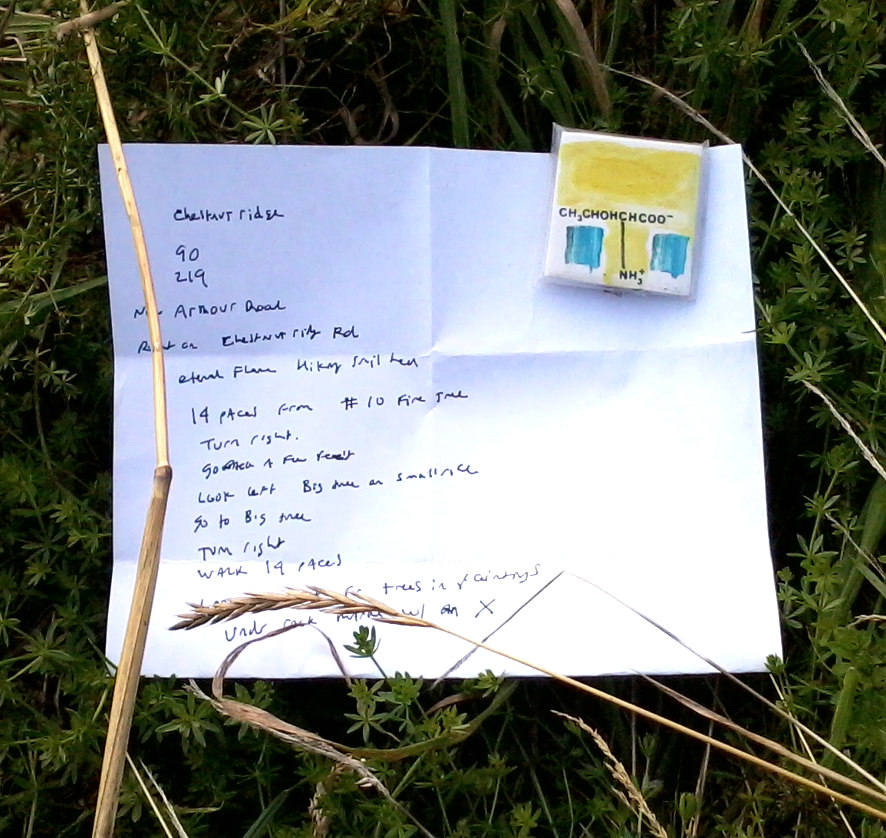 Chestnut ridge
CH₃CHOHCHCOO⁻
NH₃⁺
90
219
Armour Road
on Chestnut ridge Rd
eternal Flame Hiking
14 PACes From #10 Fire Tree
Turn right.
A Few Feet
Look Left Big tree on small rise
go to Big tree
Turn right
WALK 14 PACes
trees in paintings
Under rock w/ an X